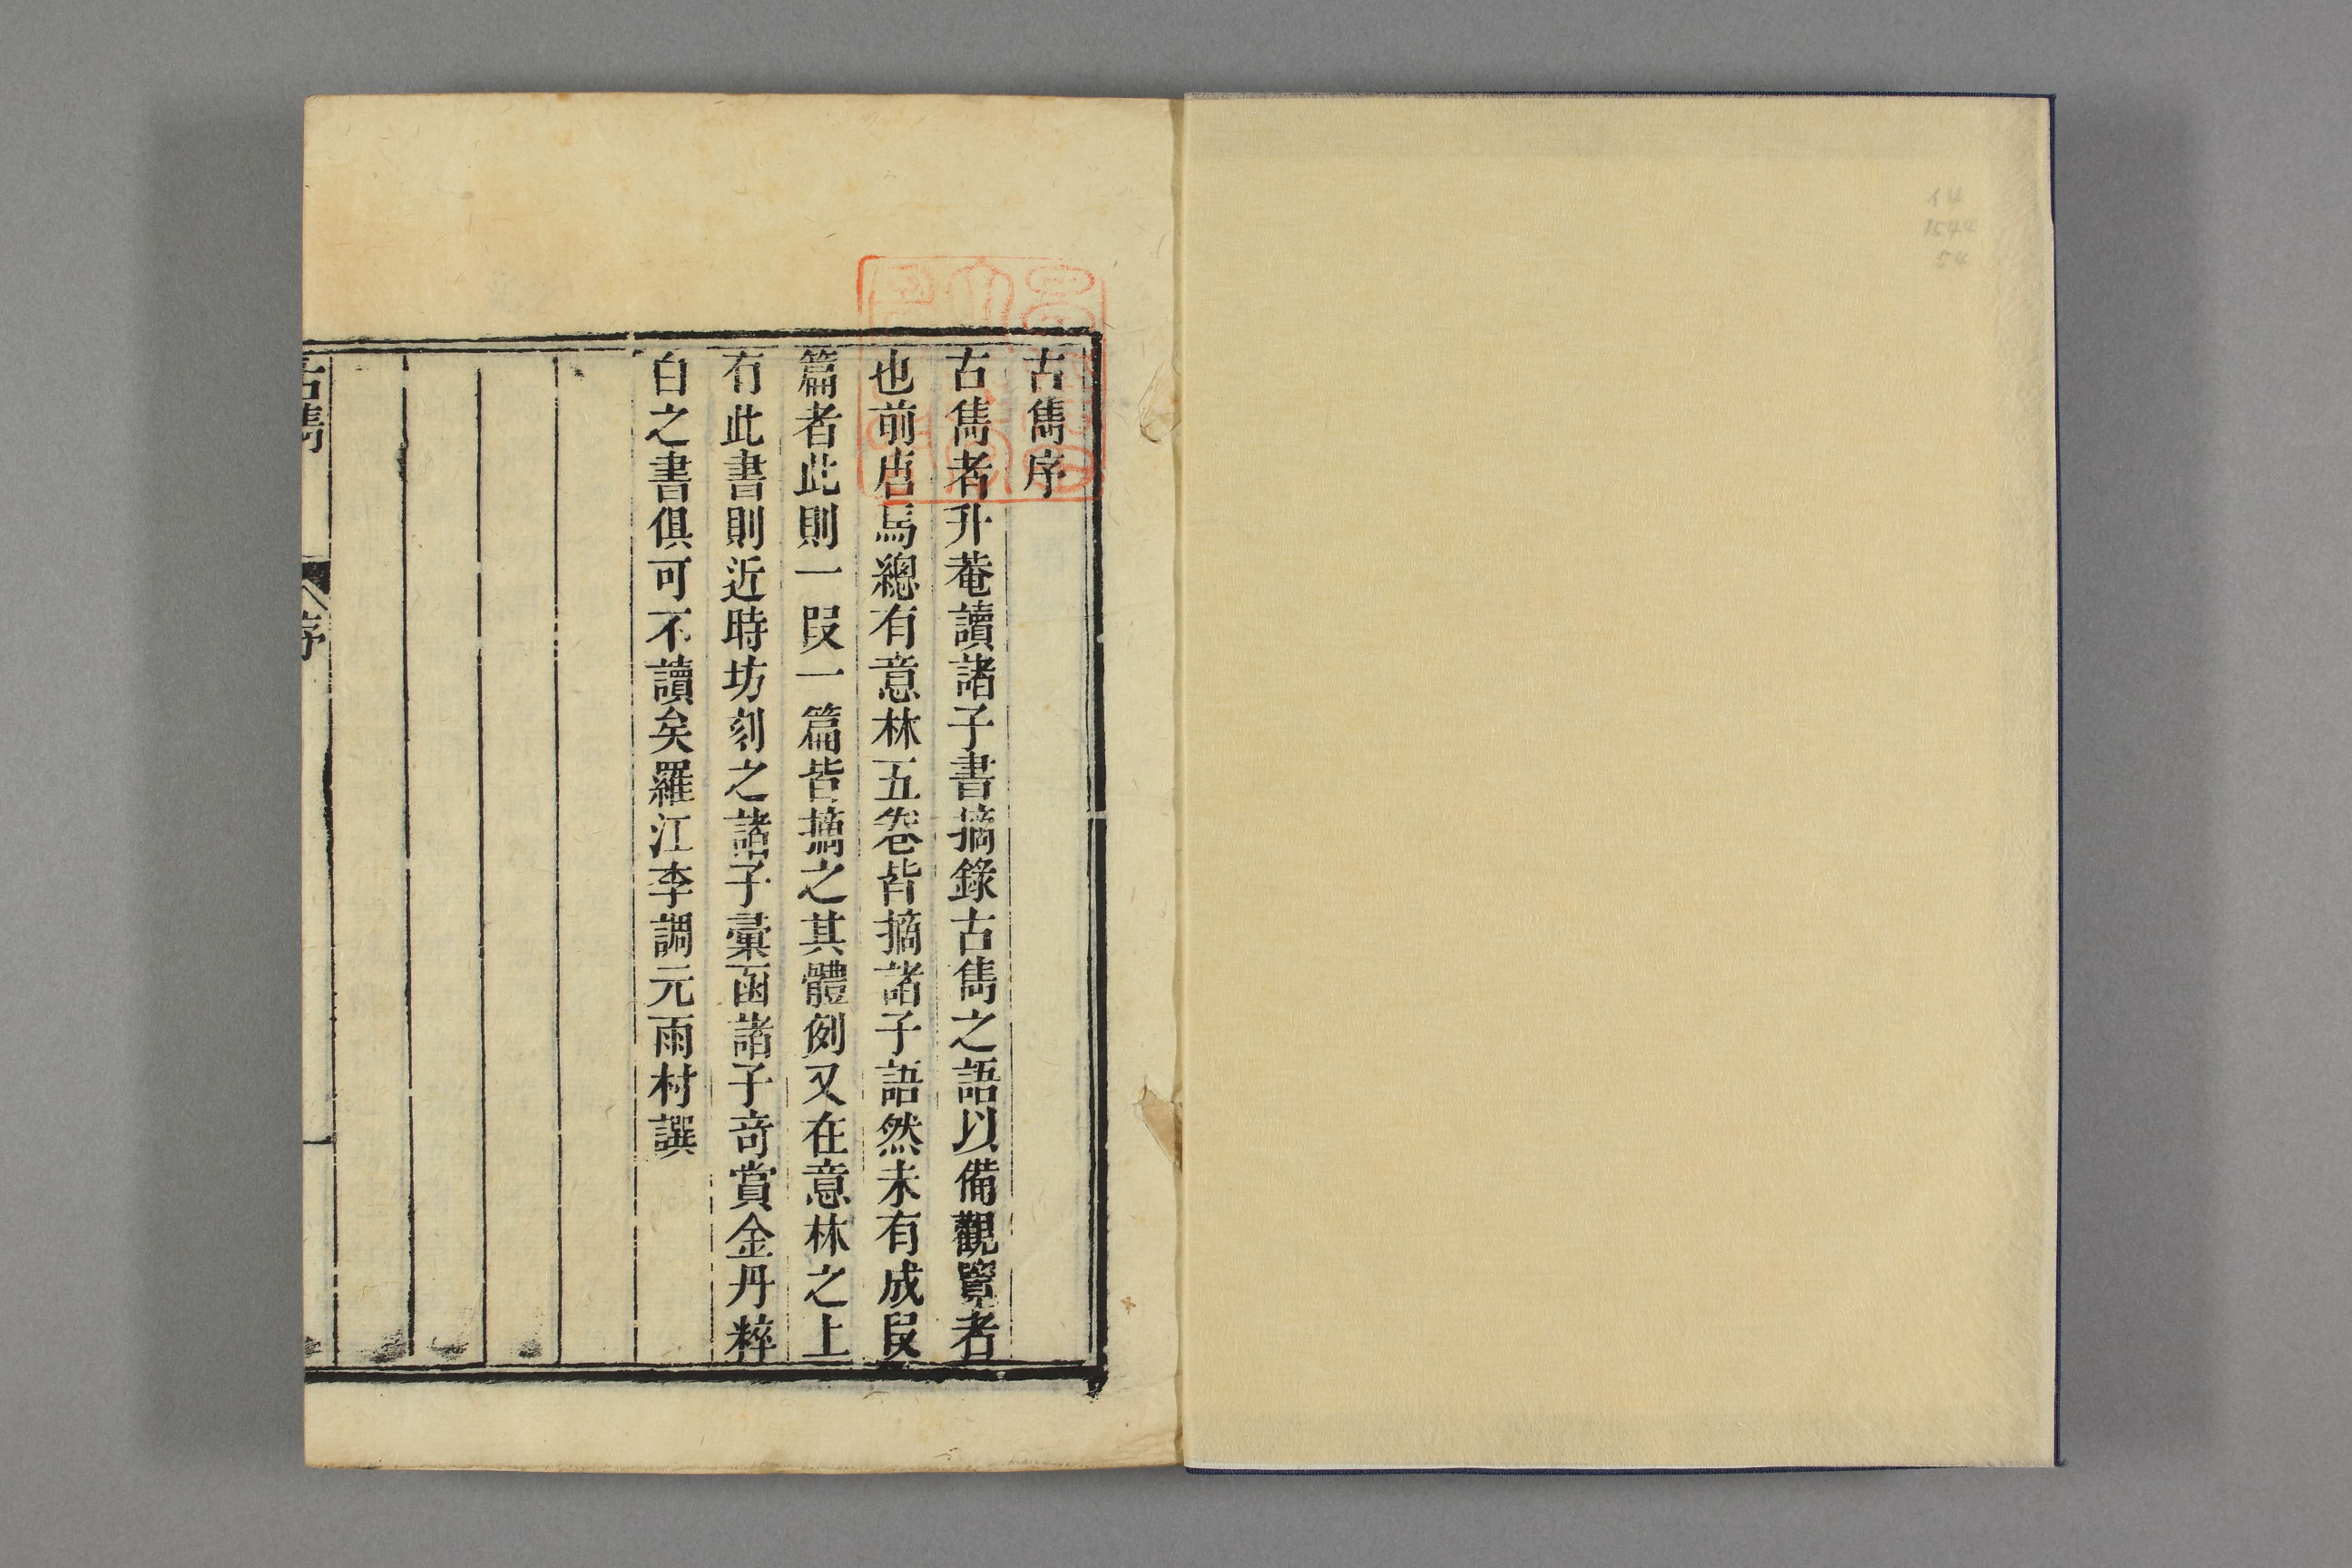 古雋序
古雋者升菴讀諸子書摘錄古雋之語以備觀覽者
也前唐馬總有意林五卷皆摘諸子語然未有成叚
篇者此則一叚一篇皆摘之其體例又在意林之上
有此書則近時坊刻之諸子彙函諸子竒賞金丹粹
白之書俱可不讀矣羅江李調元雨村譔
古雋
序
一